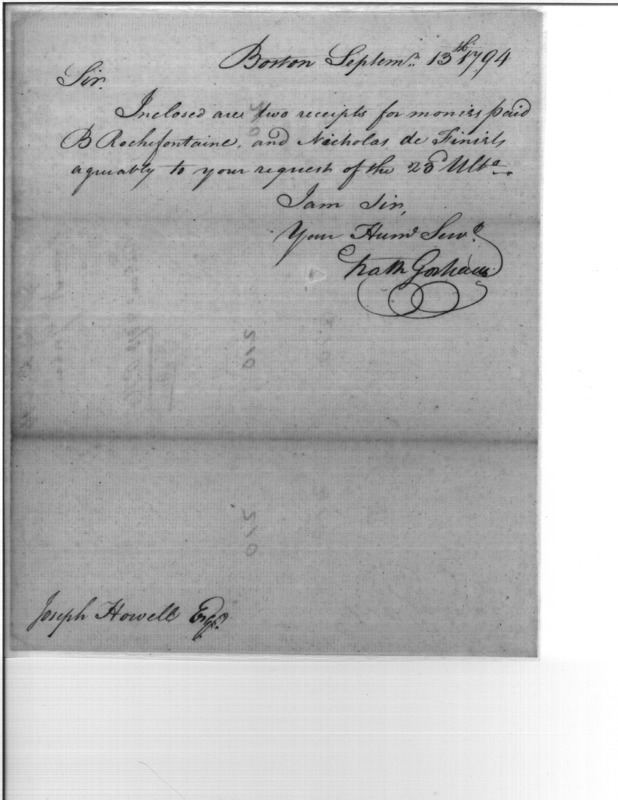 Boston Septemr. 13th 1794
Sir.
Inclosed are two receipts for monies paid
B Rochefontaine, and Nicholas de Finiels
agreeably to your request of the 23d Ulto.
I am Sir,
Your Humb Servt.
Nath Gorham
Joseph Howell Esqr.